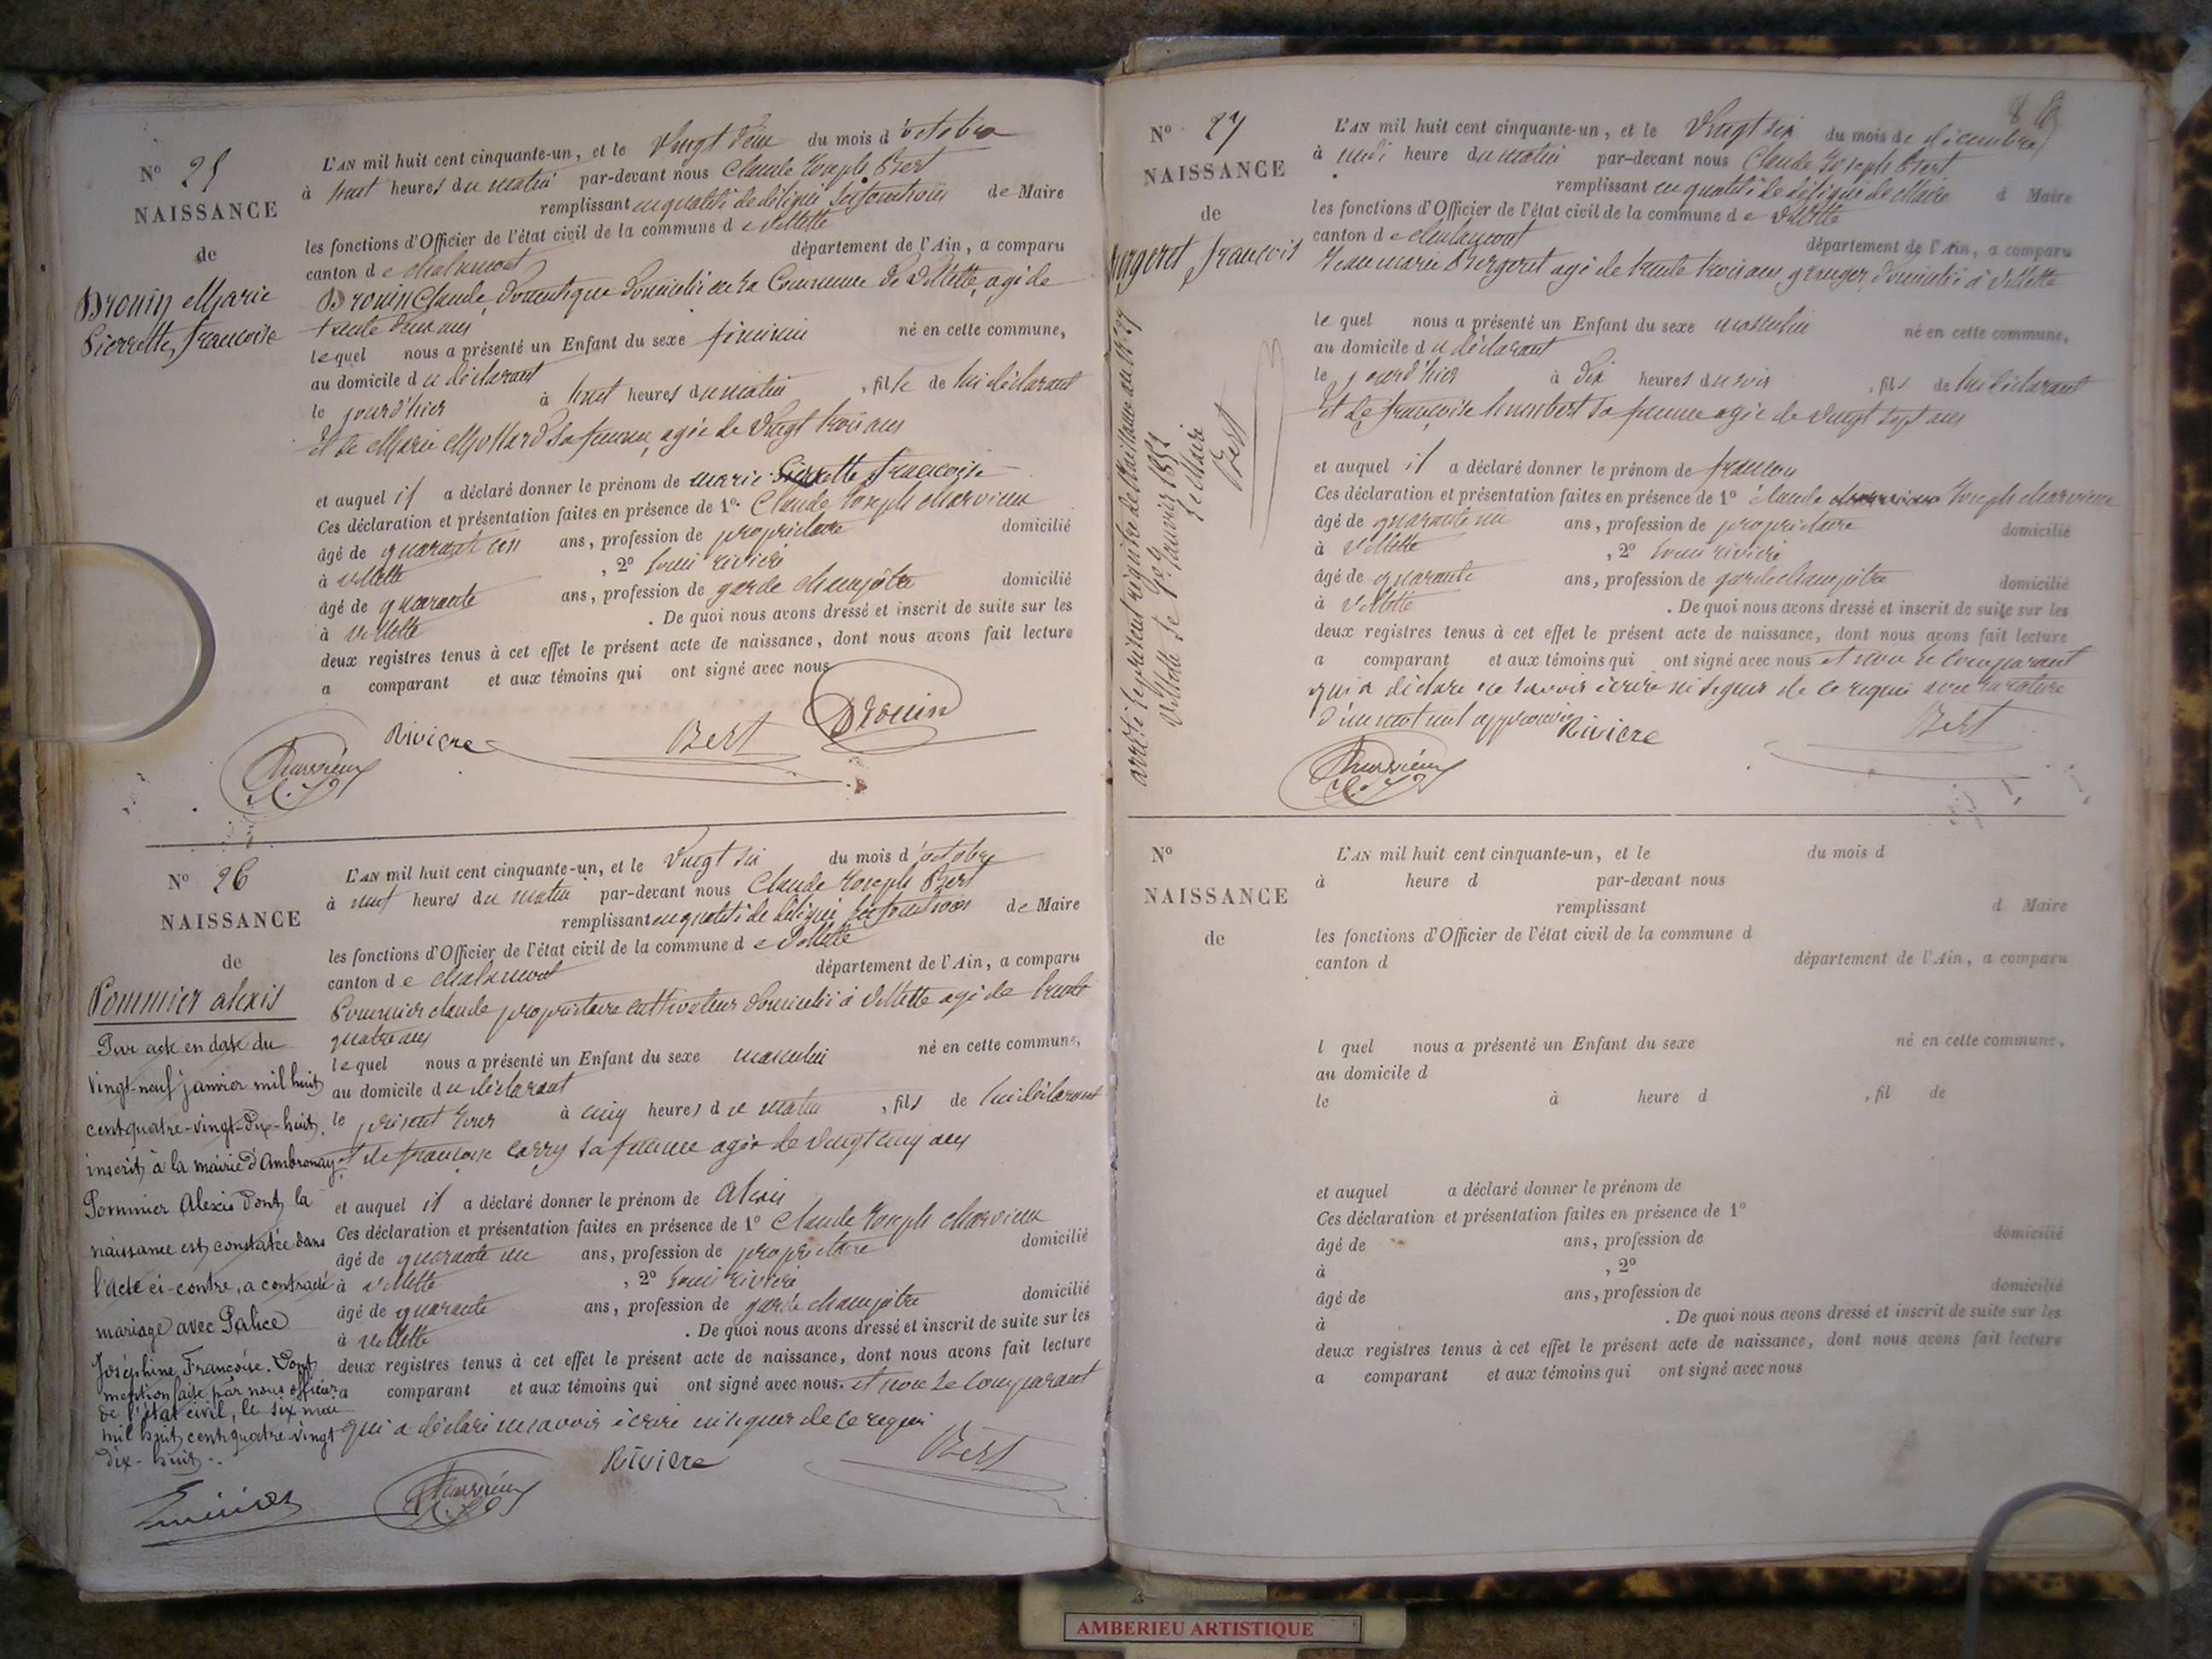 N° 25
NAISSANCE
de
Drouin Marie
Pierrette, françoise
L'AN mil huit cent cinquante-un, et le Vingt deux du mois d'octobre
à huit heures du matin par-devant nous Claude Joseph Bert
remplissant en qualité de délégué les fonctions de Maire
les fonctions d'Officier de l'état civil de la commune de Villette
canton de chalamont département de l'Ain, a comparu
Drouin Claude, domestique domicilié en la Commune de Villette, agé de
trente deux ans
lequel nous a présenté un Enfant du sexe féminin né en cette commune,
au domicile du déclarant
le jourd'hier à huit heures du matin, fille de lui déclarant
et de Marie Mollard sa femme, agée de Vingt trois ans
et auquel il a déclaré donner le prénom de marie Pierrette françoise
Ces déclaration et présentation faites en présence de 1° Claude Joseph charvieux
âgé de quarante un ans, profession de propriétaire domicilié
à villette, 2° Louis rivière
âgé de quarante ans, profession de garde champêtre domicilié
à villette. De quoi nous avons dressé et inscrit de suite sur les
deux registres tenus à cet effet le présent acte de naissance, dont nous avons fait lecture
a comparant et aux témoins qui ont signé avec nous
Rivière Bert Drouin
Charvieux
N° 26
NAISSANCE
de
Pommier alexis
Par acte en date du
vingt-neuf janvier mil huit
cent quatre-vingt-dix-huit,
inscrit à la mairie d'Ambronay
Pommier Alexis dont la
naissance est constatée dans
l'acte ci-contre, a contracté
mariage avec Palice
Joséphine Françoise. Dont
mention faite par nous officier
de l'état civil, le six mai
mil huit cent quatre-vingt
dix-huit.
L'AN mil huit cent cinquante-un, et le Vingt six du mois d'octobre
à neuf heures du matin par-devant nous Claude Joseph Bert
remplissant en qualité de délégué les fonctions de Maire
les fonctions d'Officier de l'état civil de la commune de Villette
canton de chalamont département de l'Ain, a comparu
Pommier claude propriétaire cultivateur domicilié à Villette agé de trente
quatre ans
lequel nous a présenté un Enfant du sexe masculin né en cette commune,
au domicile du déclarant
le présent jour à cinq heures du matin, fils de lui déclarant
et de françoise carry sa femme agée de vingt cinq ans
et auquel il a déclaré donner le prénom de alexis
Ces déclaration et présentation faites en présence de 1° Claude Joseph charvieux
âgé de quarante un ans, profession de propriétaire domicilié
à villette, 2° Louis rivière
âgé de quarante ans, profession de garde champêtre domicilié
à villette. De quoi nous avons dressé et inscrit de suite sur les
deux registres tenus à cet effet le présent acte de naissance, dont nous avons fait lecture
a comparant et aux témoins qui ont signé avec nous. et non le comparant
qui a déclaré ne savoir écrire ni signer de ce requis
Rivière Bert
Charvieux
N° 27
NAISSANCE
de
Bergeret françois
arrêté le présent registre de naissance au n° 27
Villette le 1er Janvier 1852
Le Maire
Bert
L'AN mil huit cent cinquante-un, et le Vingt six du mois de décembre
à midi heure du matin par-devant nous Claude Joseph Bert
remplissant en qualité de délégué de Maire d Maire
les fonctions d'Officier de l'état civil de la commune de Villette
canton de chalamont département de l'Ain, a comparu
Jean marie Bergeret agé de trente trois ans, granger, domicilié à Villette
lequel nous a présenté un Enfant du sexe masculin né en cette commune,
au domicile du déclarant
le jourd'hier à dix heures du soir, fils de lui déclarant
et de françoise humbert sa femme agée de vingt sept ans
et auquel il a déclaré donner le prénom de françois
Ces déclaration et présentation faites en présence de 1° claude Joseph charvieux
âgé de quarante un ans, profession de propriétaire domicilié
à Villette, 2° Louis rivière
âgé de quarante ans, profession de garde champêtre domicilié
à Villette. De quoi nous avons dressé et inscrit de suite sur les
deux registres tenus à cet effet le présent acte de naissance, dont nous avons fait lecture
a comparant et aux témoins qui ont signé avec nous et non le comparant
qui a déclaré ne savoir écrire ni signer de ce requis avec la rature
d'un mot nul approuvé
Rivière Bert
Charvieux
N°
NAISSANCE
de
L'AN mil huit cent cinquante-un, et le du mois d
à heure d par-devant nous
remplissant d Maire
les fonctions d'Officier de l'état civil de la commune d
canton d département de l'Ain, a comparu
l quel nous a présenté un Enfant du sexe né en cette commune,
au domicile d
le à heure d, fil de
et auquel a déclaré donner le prénom de
Ces déclaration et présentation faites en présence de 1°
âgé de ans, profession de domicilié
à, 2°
âgé de ans, profession de domicilié
à. De quoi nous avons dressé et inscrit de suite sur les
deux registres tenus à cet effet le présent acte de naissance, dont nous avons fait lecture
a comparant et aux témoins qui ont signé avec nous
AMBERIEU ARTISTIQUE